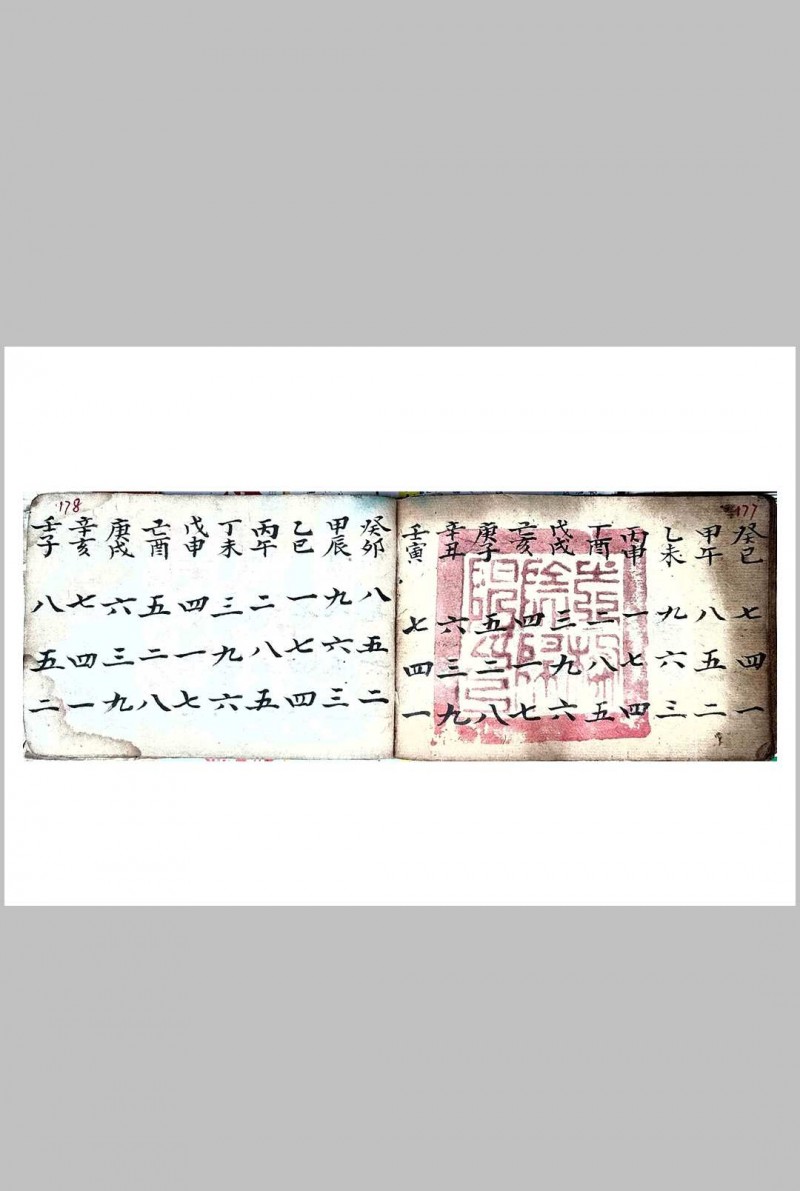 177
癸巳七四一
甲午八五二
乙未九六三
丙申一七四
丁酉二八五
戊戌三九六
己亥四一七
庚子五二八
辛丑六三九
壬寅七四一
178
癸卯八五二
甲辰九六三
乙巳一七四
丙午二八五
丁未三九六
戊申四一七
己酉五二八
庚戌六三九
辛亥七四一
壬子八五二